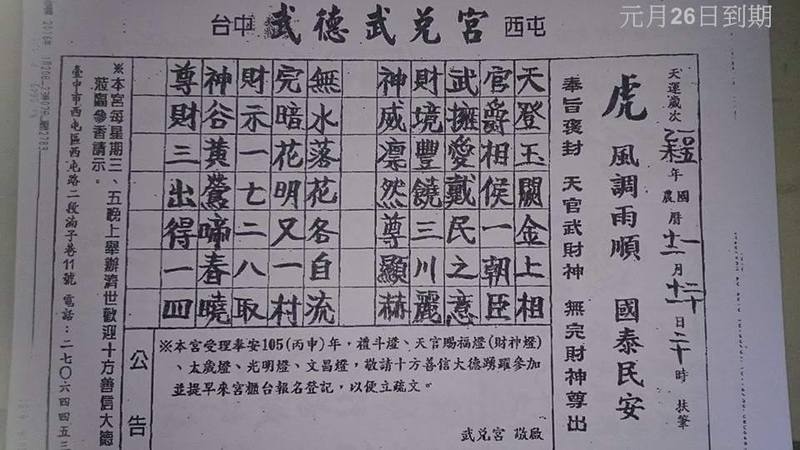 元月26日到期
台中 武德武兌宮 西屯
天運歲次 乙未 年 國農 曆 十一 月 二十 日 二十時 扶筆
虎 風調雨順 國泰民安
奉旨褒封 天官武財神 無完財神尊出
天登玉闕金上相
官爵相侯一朝臣
武擁愛戴民之意
財境豐饒三川麗
神威凛然尊顯赫
無水落花各自流
完暗花明又一村
財示一七二八取
神谷黃鶯啼春曉
尊財三出得一四
公告
※本宮受理奉安105(丙申)年，禮斗燈、天官賜福燈(財神燈)
、太歲燈、光明燈、文昌燈，敬請十方善信大德踴躍參加
並提早來宮櫃台報名登記，以便立疏文。
武兌宮 敬啟
※本宮每星期三、五晚上舉辦濟世歡迎十方善信大德
蒞臨參香請示。
臺中市西屯區西屯路二段湳子巷11號 電話：二七〇六四四五三